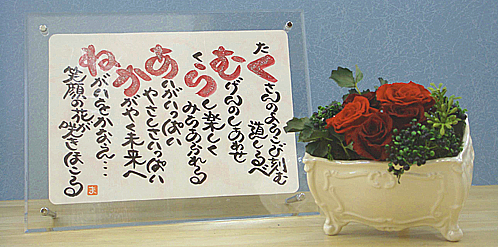 たくさんのよろこび刻む
道しるべ
むげんのしあわせ
くらし楽しく
みちあふれる
あいがいっぱい
やさしさいっぱい
かがやく未来へ
ねがいをかなえ…
笑顔の花が
咲きほこる
ま